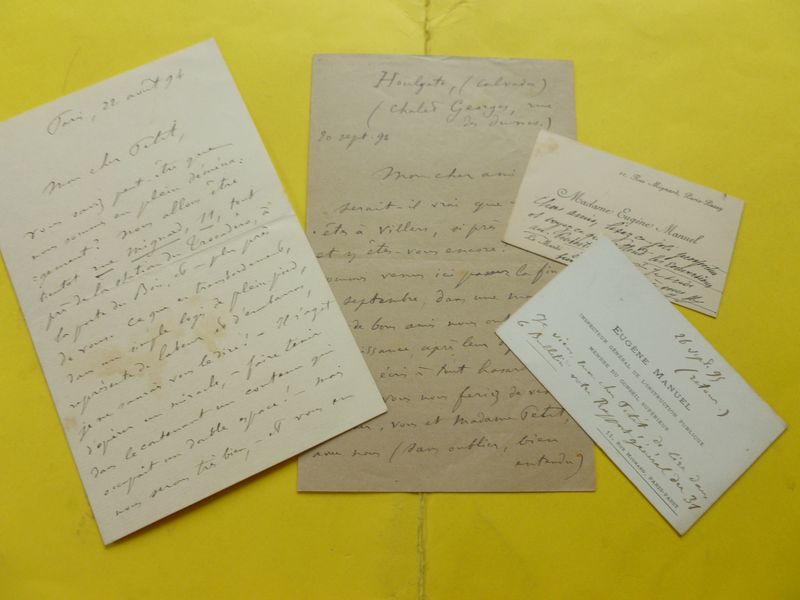 Paris, 22 août 94
Mon cher Petit,
vous savez peut-être que
nous sommes en plein déména-
gement? Nous allons être
bientôt rue Mignard, 11, tout
près de la station du Trocadéro, à
la porte du Bois, et plus près
de vous. Ce que ce transbordement,
dans un simple logis de plain-pied,
représente de labeur et d'embarras,
je ne saurais vous le dire! Il s'agit
d'opérer un miracle, faire tenir
dans le contenant un contenu qui
occupait un double espace! mais
nous serons très bien, et vous en
Houlgate, (Calvados)
(Chalet Georges, rue
des dunes.)
20 sept. 92
Mon cher ami
serait-il vrai que
êtes à Villers, si près
et y êtes-vous encore?
sommes venus ici passer la fin
septembre, dans une
de bons amis nous
après leur
à tout hasard
vous nous feriez de
vous et Madame Petit,
avec nous (sans oublier, bien
entendu)
11, Rue Mignard, Paris-Passy
Madame Eugène Manuel
26 sept. 95
(retour.)
EUGÈNE MANUEL
INSPECTEUR GÉNÉRAL DE L'INSTRUCTION PUBLIQUE
MEMBRE DU CONSEIL SUPÉRIEUR
11, RUE MIGNARD, PARIS-PASSY
Je viens, mon cher Petit, de lire dans
le Bulletin votre Rapport général du 31